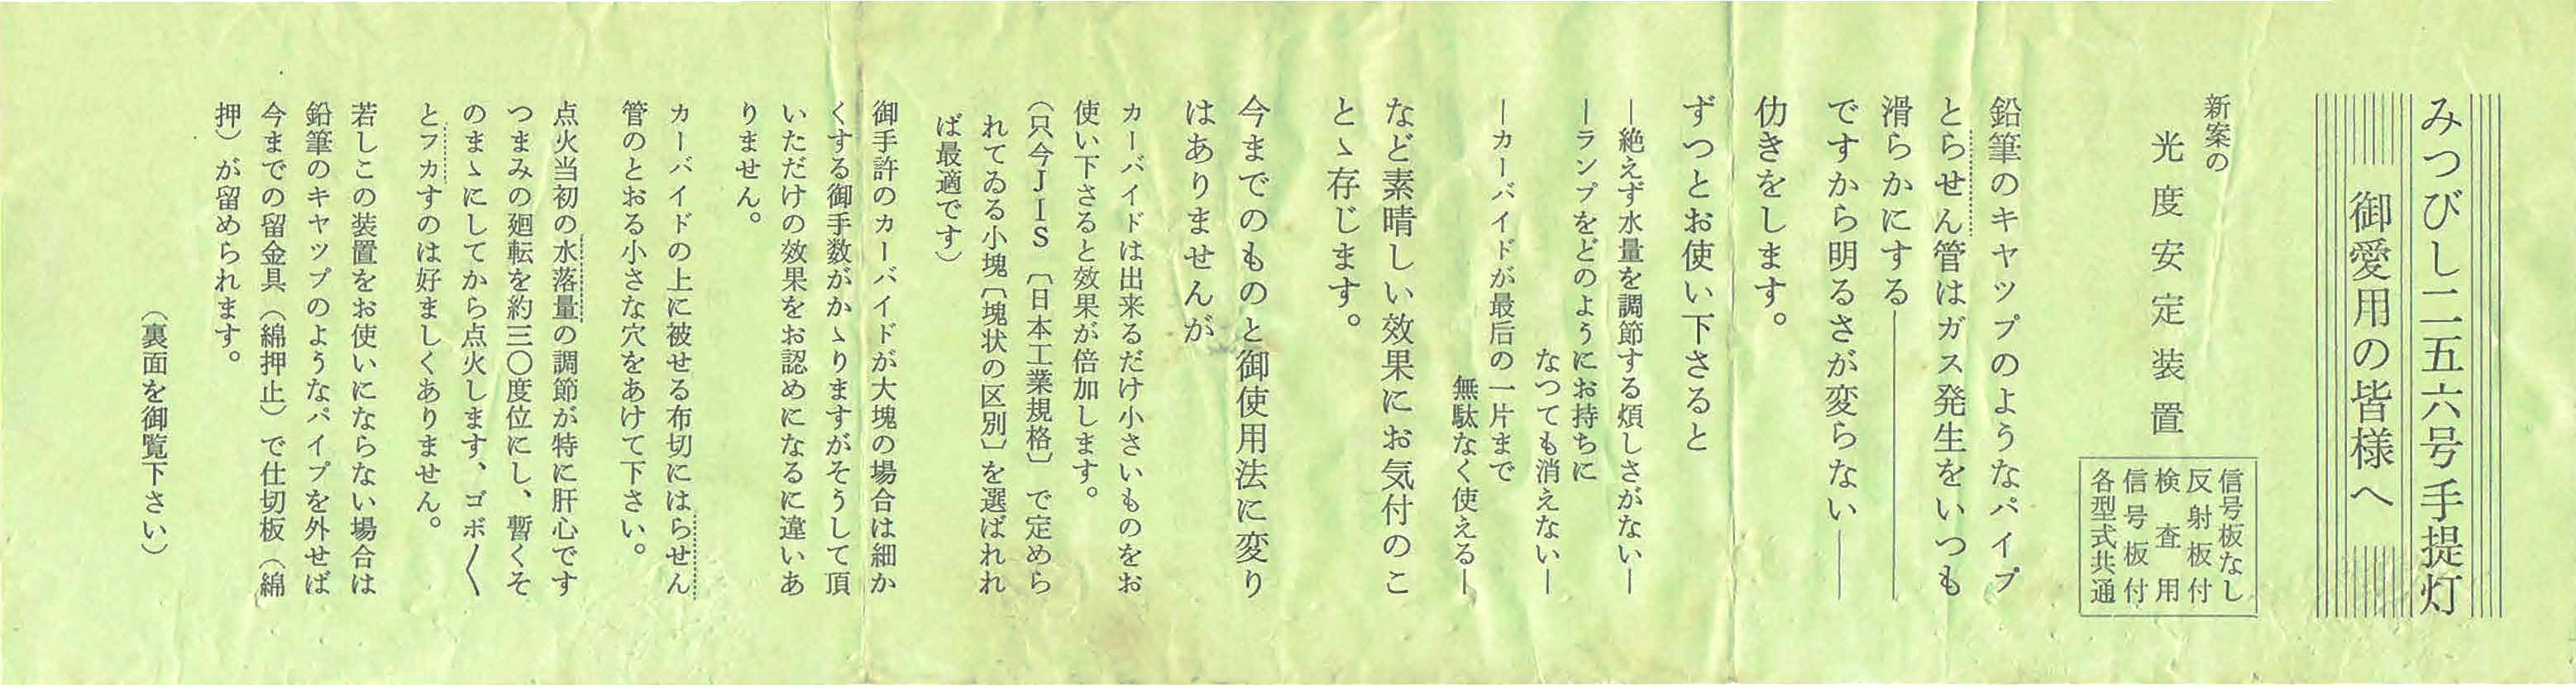 みつびし二五六号手提灯
御愛用の皆様へ
新案の
光度安定装置
信号板なし
反射板付
検査用
信号板付
各型式共通
鉛筆のキヤツプのようなパイプ
とらせん管はガス発生をいつも
滑らかにする――
ですから明るさが変らない――
仂きをします。
ずつとお使い下さると
―絶えず水量を調節する煩しさがない―
―ランプをどのようにお持ちに
なつても消えない―
―カーバイドが最后の一片まで
無駄なく使える―
など素晴しい効果にお気付のこ
とゝ存じます。
今までのものと御使用法に変り
はありませんが
カーバイドは出来るだけ小さいものをお
使い下さると効果が倍加します。
（只今JIS〔日本工業規格〕で定めら
れてゐる小塊〔塊状の区別〕を選ばれれ
ば最適です）
御手許のカーバイドが大塊の場合は細か
くする御手数がかゝりますがそうして頂
いただけの効果をお認めになるに違いあ
りません。
カーバイドの上に被せる布切にはらせん
管のとおる小さな穴をあけて下さい。
点火当初の水落量の調節が特に肝心です
つまみの廻転を約三〇度位にし、暫くそ
のまゝにしてから点火します、ゴボ〱
とフカすのは好ましくありません。
若しこの装置をお使いにならない場合は
鉛筆のキヤツプのようなパイプを外せば
今までの留金具（綿押止）で仕切板（綿
押）が留められます。
（裏面を御覧下さい）